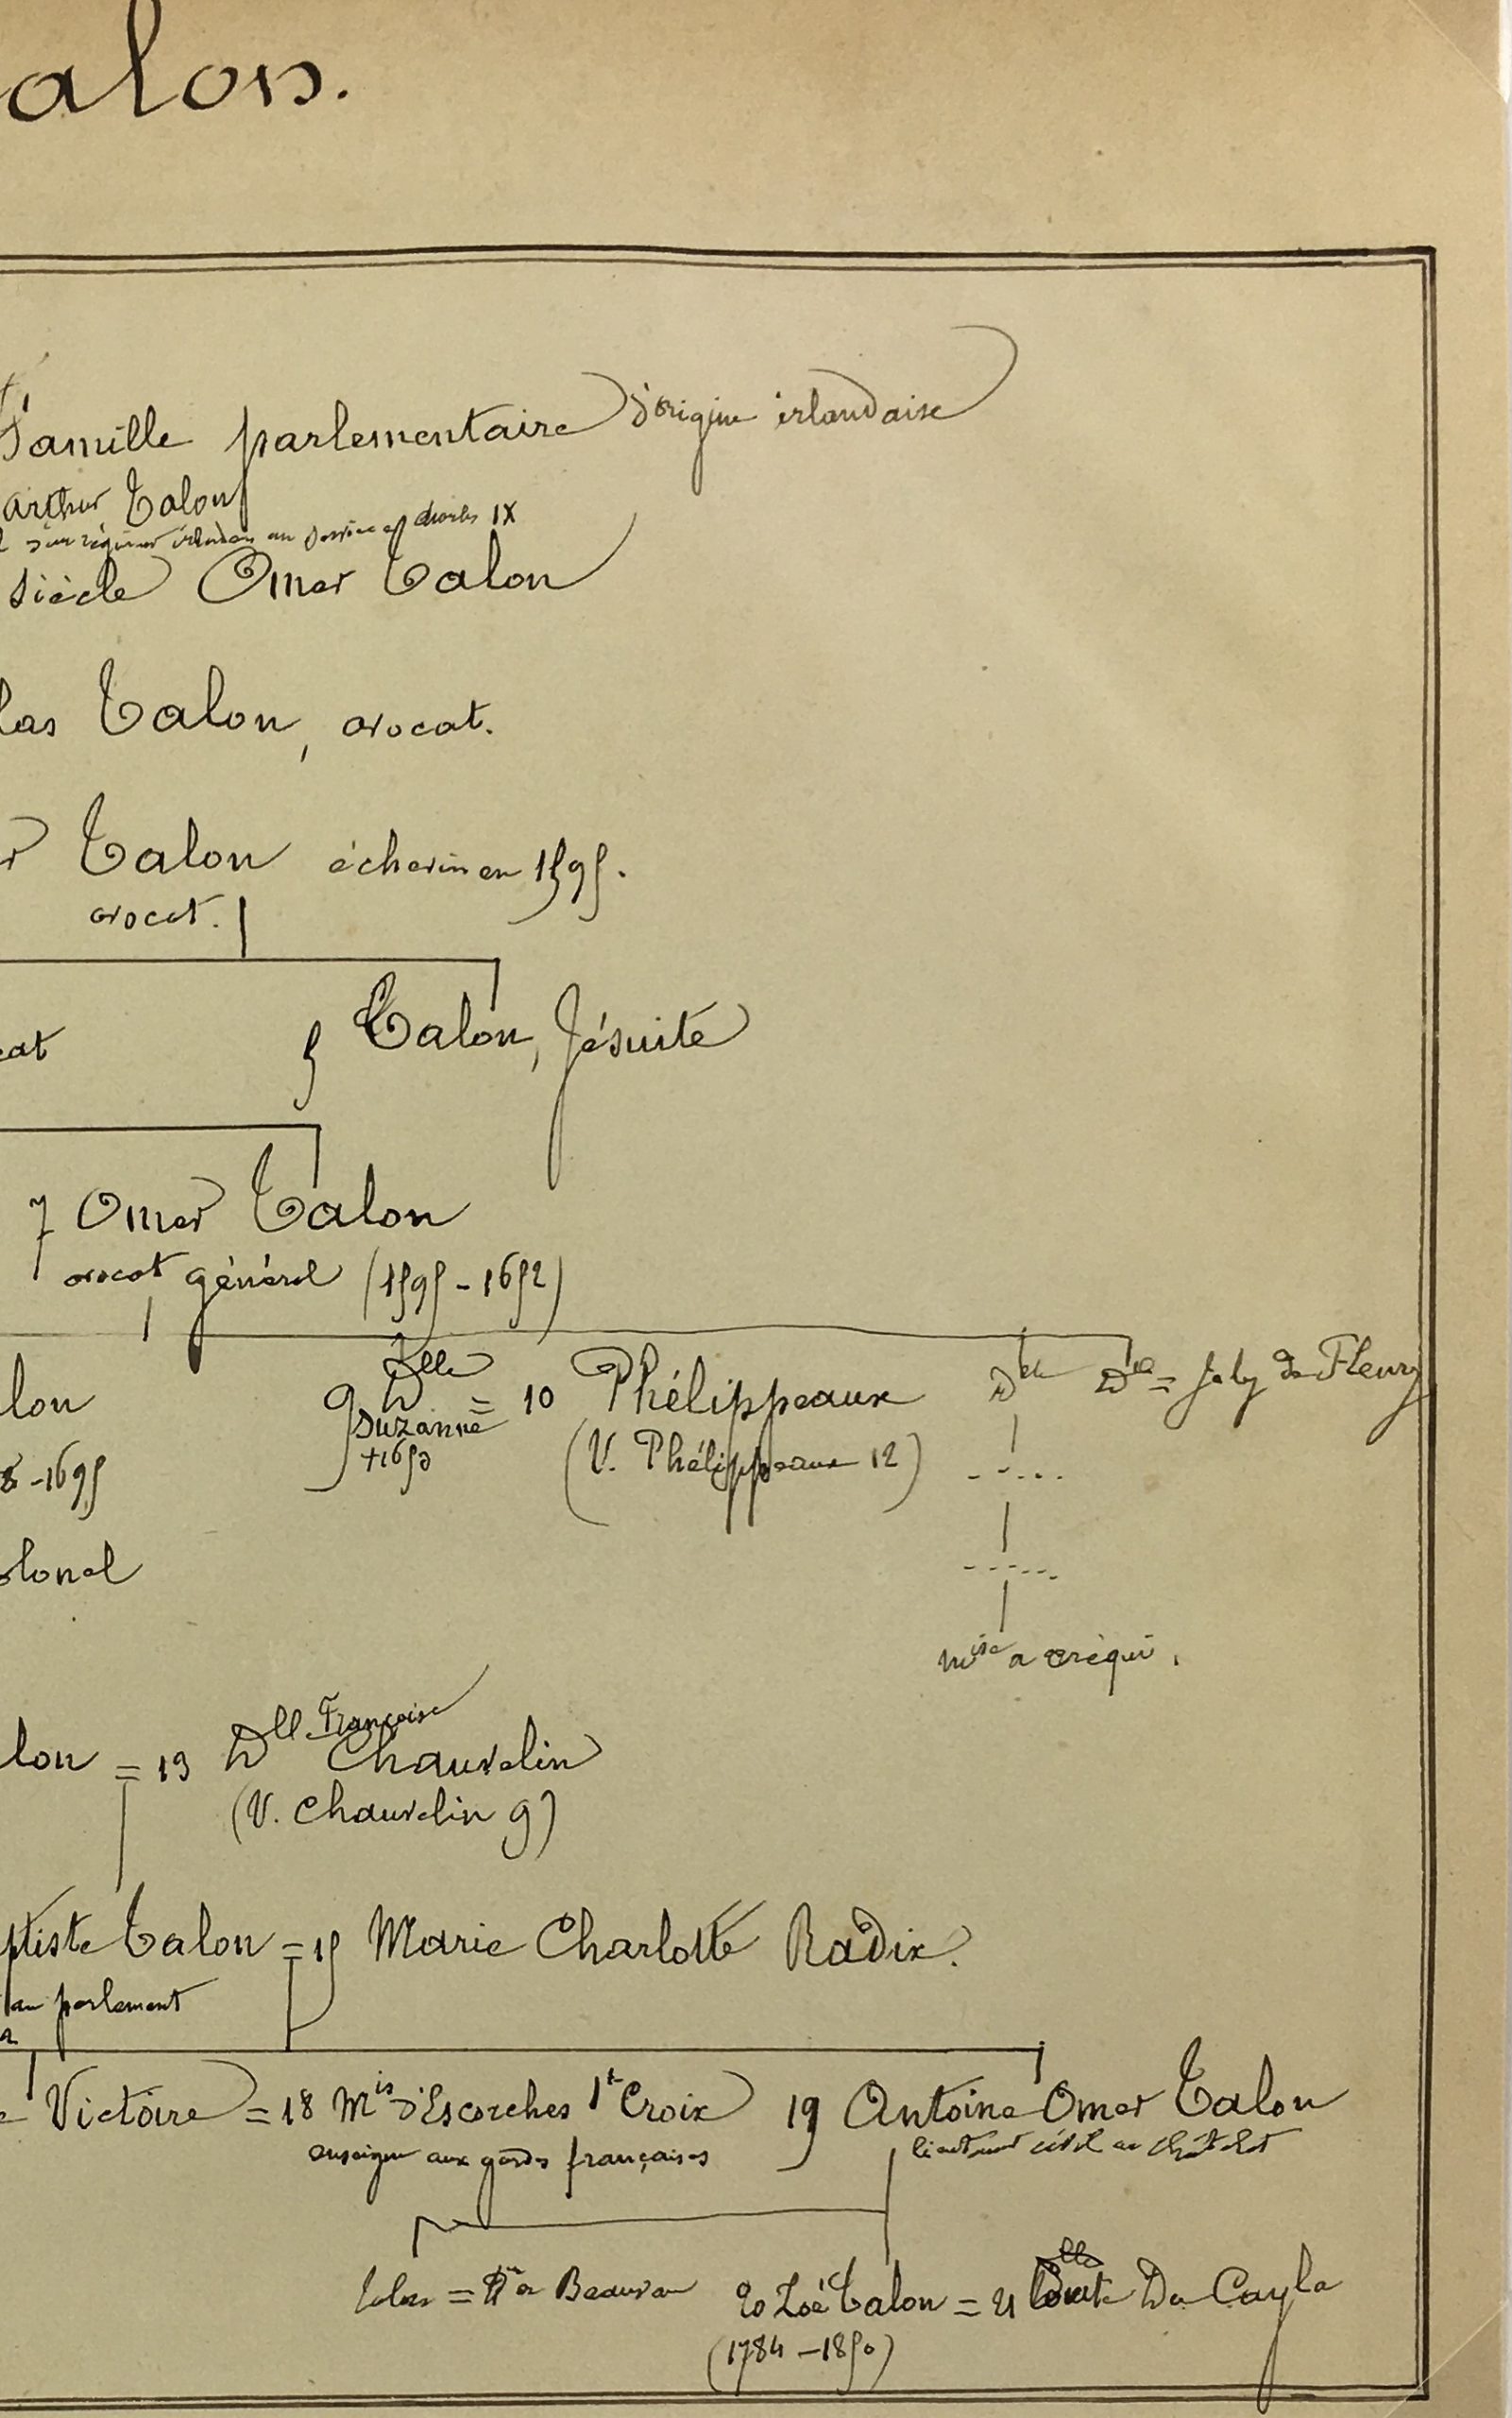 alon.
Famille parlementaire d'origine irlandaise
Arthur Talon
irlandais au service de Charles IX
siècle Omer Talon
las Talon, avocat.
r Talon échevin en 1595.
avocat.
cat 5 Talon, Jésuite
7 Omer Talon
avocat général (1595-1652)
lon 9 Dlle = 10 Phélippeaux Dlle Dlle = Joly de Fleury
Suzanne
+1653 (V. Phélippeaux 12)
8-1695
olonel
mise de Créqui.
lon = 13 Dlle Françoise Chauvelin
(V. Chauvelin 9)
ptiste Talon = 15 Marie Charlotte Radix.
au parlement
e Victoire = 18 Mis d'Escorches Ste Croix 19 Antoine Omer Talon
enseigne aux gardes françaises lieutenant civil au Châtelet
Talon = Dlle de Beauvau 20 Zoé Talon = 21 Comte Du Cayla
(1784-1850)